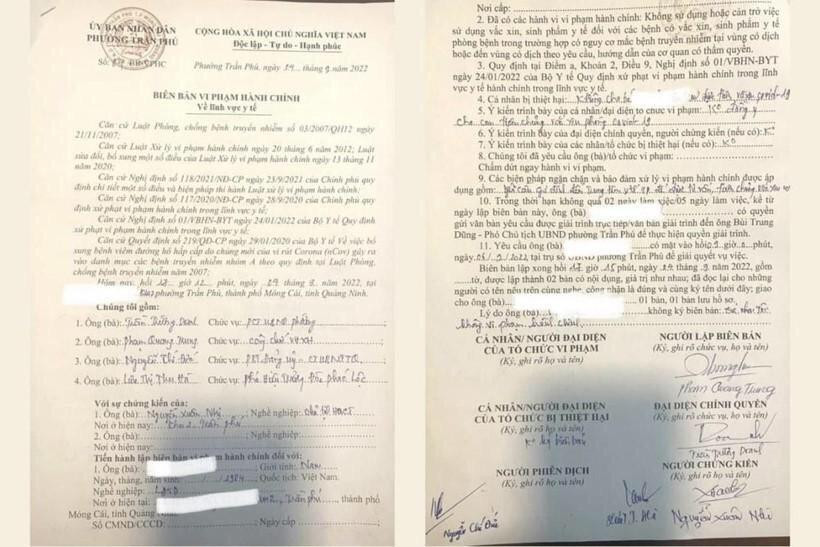 ỦY BAN NHÂN DÂN
PHƯỜNG TRẦN PHÚ
CỘNG HÒA XÃ HỘI CHỦ NGHĨA VIỆT NAM
Độc lập - Tự do - Hạnh phúc
Phường Trần Phú, ngày 29 tháng 9 năm 2022
BIÊN BẢN VI PHẠM HÀNH CHÍNH
Về lĩnh vực y tế
Căn cứ Luật Phòng, chống bệnh truyền nhiễm số 03/2007/QH12 ngày
21/11/2007;
Căn cứ Luật Xử lý vi phạm hành chính ngày 20 tháng 6 năm 2012; Luật
sửa đổi, bổ sung một số điều của Luật Xử lý vi phạm hành chính ngày 13 tháng 11
năm 2020;
Căn cứ Nghị định số 118/2021/NĐ-CP ngày 23/9/2021 của Chính phủ quy
định chi tiết một số điều và biện pháp thi hành Luật xử lý vi phạm hành chính;
Căn cứ Nghị định số 117/2020/NĐ-CP ngày 28/9/2020 của Chính phủ quy
định xử phạt vi phạm hành chính trong lĩnh vực y tế;
Căn cứ Nghị định số 01/VBHN-BYT ngày 24/01/2022 của Bộ Y tế Quy định
xử phạt vi phạm hành chính trong lĩnh vực y tế;
Căn cứ Quyết định 219/QĐ-CP ngày 29/01/2020 của Bộ Y tế Về việc bổ
sung bệnh viêm đường hô hấp cấp do chủng mới của vi rút Corona (nCov) gây ra
vào danh mục các bệnh truyền nhiễm nhóm A theo quy định tại Luật Phòng,
chống bệnh truyền nhiễm năm 2007;
Hôm nay, hồi giờ phút, ngày 29 tháng 9 năm 2022, tại
phường Trần Phú, thành phố Móng Cái, tỉnh Quảng Ninh.
Chúng tôi gồm:
1. Ông (bà): Trần Trường Doanh Chức vụ: PCT UBND phường
2. Ông (bà): Phạm Quang Trung Chức vụ: công chức VHXH
3. Ông (bà): Nguyễn Chức vụ:
4. Ông (bà): Chức vụ: Phó Hiệu trưởng
Với sự chứng kiến của:
1. Ông (bà): Nguyễn Xuân Nhị; Nghề nghiệp:
Nơi ở hiện nay: Khu 2, Trần Phú
2. Ông (bà): ; Nghề nghiệp:
Nơi ở hiện nay:
Tiến hành lập biên bản vi phạm hành chính đối với:
1. Ông (bà): Giới tính: Nam
Ngày, tháng, năm sinh / /1984 Quốc tịch: Việt Nam.
Nghề nghiệp: LĐTD
Nơi ở hiện tại: Trần Phú, thành phố
Móng Cái, tỉnh Quảng
Số CMND/CCCD: Ngày cấp
Nơi cấp:
2. Đã có các hành vi vi phạm hành chính: Không sử dụng hoặc cản trở việc
sử dụng vắc xin, sinh phẩm y tế đối với các bệnh có vắc xin, sinh phẩm y tế
phòng bệnh trong trường hợp có nguy cơ mắc bệnh truyền nhiễm tại vùng có dịch
hoặc đến vùng có dịch theo yêu cầu, hướng dẫn của cơ quan có thẩm quyền.
3. Quy định tại Điểm a, Khoản 2, Điều 9, Nghị định số 01/VBHN-BYT
ngày 24/01/2022 của Bộ Y tế Quy định xử phạt vi phạm hành chính trong lĩnh
vực y tế hành chính trong lĩnh vực y tế.
4. Cá nhân bị thiệt hại: Không cho bé covid-19
5. Ý kiến trình bày của cá nhân/đại diện tổ chức vi phạm: Ko đồng ý
cho con tiêm chủng phòng covid 19
6. Ý kiến trình bày của đại diện chính quyền, người chứng kiến (nếu có): Ko
7. Ý kiến trình bày của các nhân/tổ chức bị thiệt hại (nếu có): Ko
8. Chúng tôi đã yêu cầu ông (bà)/tổ chức vi phạm:
Chấm dứt ngay hành vi vi phạm.
9. Các biện pháp ngăn chặn và bảo đảm xử lý vi phạm hành chính được
áp dụng gồm:
10. Trong thời hạn không quá 02 ngày làm việc/05 ngày làm việc, kể từ
ngày lập biên bản này, ông (bà) có quyền
gửi văn bản yêu cầu được giải trình trực tiếp/văn bản giải trình đến ông Bùi Trung
Dũng - Phó Chủ tịch UBND phường Trần Phú để thực hiện quyền giải trình.
11. Yêu cầu ông (bà) có mặt vào hồi giờ phút,
ngày /2022, tại trụ sở UBND phường Trần Phú để giải quyết vụ việc.
Biên bản lập xong hồi giờ 15 phút, ngày 29 tháng 9 năm 2022, gồm
tờ, được lập thành 02 bản có nội dung, giá trị như nhau; đã đọc lại cho những
người có tên nêu trên cùng nghe, công nhận là đúng và cùng ký tên dưới đây;
giao cho ông (bà) 01 bản, 01 bản lưu hồ sơ.
Lý do ông (bà) không ký biên bản:
không vi phạm hành chính
CÁ NHÂN/ NGƯỜI ĐẠI DIỆN
CỦA TỔ CHỨC VI PHẠM
(Ký, ghi rõ họ và tên)
NGƯỜI LẬP BIÊN BẢN
(Ký, ghi rõ chức vụ, họ và tên)
Phạm Quang Trung
CÁ NHÂN/NGƯỜI ĐẠI DIỆN
CỦA TỔ CHỨC BỊ THIỆT HẠI
(Ký, ghi rõ họ và tên)
Ko ký biên bản
ĐẠI DIỆN CHÍNH QUYỀN
(Ký, ghi rõ chức vụ, họ và tên)
Trần Trường Doanh
NGƯỜI PHIÊN DỊCH
(Ký, ghi rõ họ và tên)
NGƯỜI CHỨNG KIẾN
(Ký, ghi rõ họ và tên)
Nguyễn Xuân Nhị